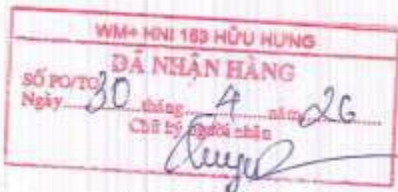 WM+ HNI 183 HỮU HƯNG
ĐÃ NHẬN HÀNG
SỐ PO/TO
Ngày 30 tháng 4 năm 26
Chữ ký người nhận